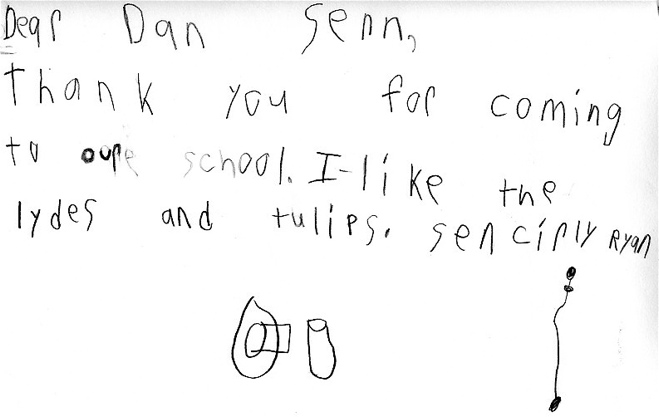 Dear Dan Senn,
thank you for coming
to oure school. I like the
lydes and tulips. sencirly Ryan